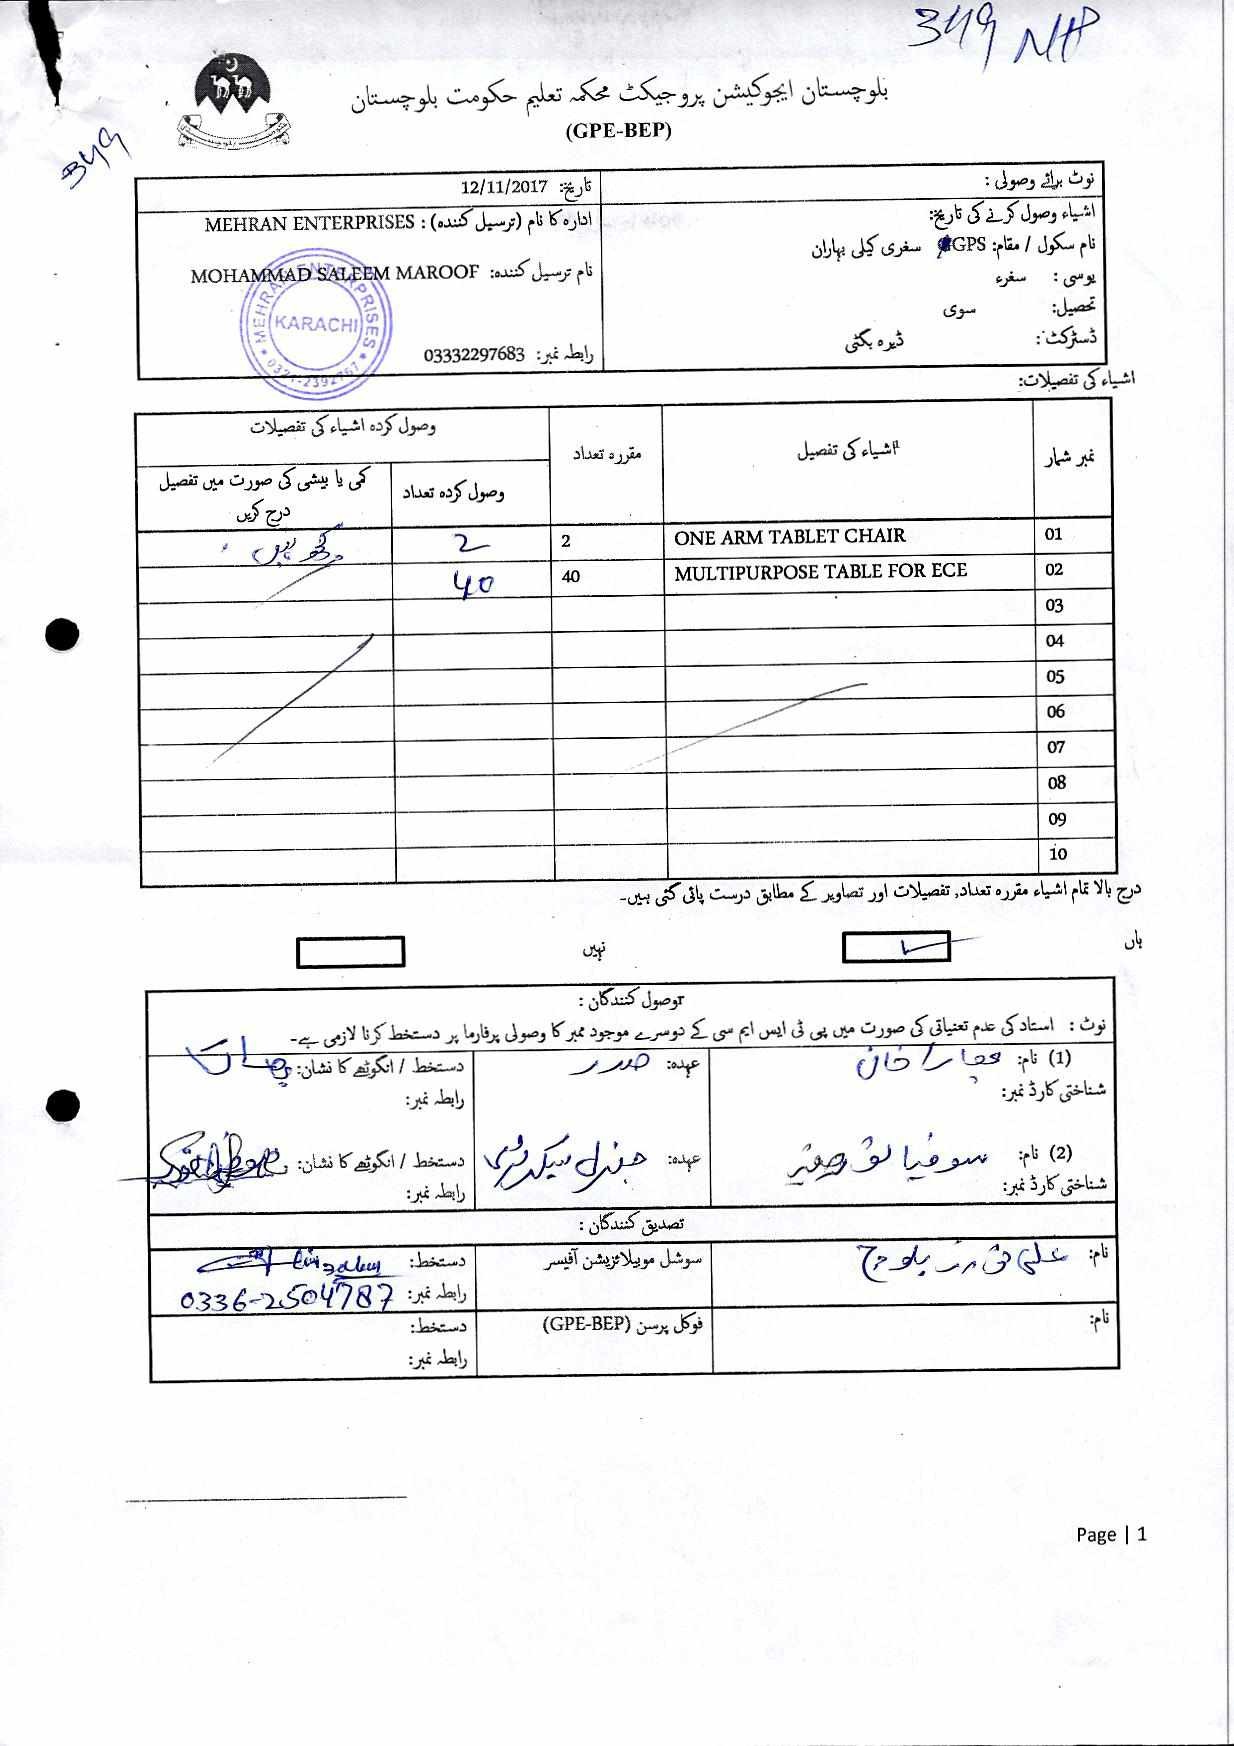 349 NHP
349
بلوچستان ایجوکیشن پروجیکٹ محکمہ تعلیم حکومت بلوچستان
(GPE-BEP)
نوٹ برائے وصولی :
اشیاء وصول کرنے کی تاریخ:
نام سکول / مقام: GPS سغری کیلی بہاران
یوسی : سغرء
تحصیل: سوی
ڈسٹرکٹ : ڈیرہ بگٹی
تاریخ: 12/11/2017
ادارہ کا نام (ترسیل کنندہ) : MEHRAN ENTERPRISES
نام ترسیل کنندہ: MOHAMMAD SALEEM MAROOF
رابطہ نمبر: 03332297683
MEHRAN ENTERPRISES
KARACHI
0321-2392767
اشیاء کی تفصیلات:
نمبر شمار اشیاء کی تفصیل مقررہ تعداد وصول کردہ اشیاء کی تفصیلات
وصول کردہ تعداد کمی یا بیشی کی صورت میں تفصیل درج کریں
01 ONE ARM TABLET CHAIR 2 2
02 MULTIPURPOSE TABLE FOR ECE 40 40
03
04
05
06
07
08
09
10
درج بالا تمام اشیاء مقررہ تعداد, تفصیلات اور تصاویر کے مطابق درست پائی گئی ہیں۔
ہاں نہیں
وصول کنندگان :
نوٹ : استاد کی عدم تعیناتی کی صورت میں پی ٹی ایس ایم سی کے دوسرے موجود ممبر کا وصولی پرفارما پر دستخط کرنا لازمی ہے۔
(1) نام: خان عہدہ: صدر دستخط / انگوٹھے کا نشان:
شناختی کارڈ نمبر: رابطہ نمبر:
(2) نام: عہدہ: جنرل سیکرٹری دستخط / انگوٹھے کا نشان:
شناختی کارڈ نمبر: رابطہ نمبر:
تصدیق کنندگان :
نام: علی بلوچ سوشل موبیلائزیشن آفیسر دستخط:
رابطہ نمبر: 0336-2504787
نام: فوکل پرسن (GPE-BEP) دستخط:
رابطہ نمبر:
Page | 1